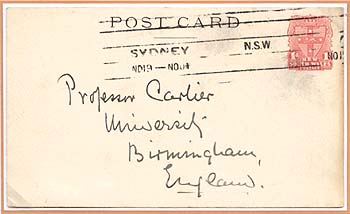 POST CARD
SYDNEY N.S.W
NO19 — NO01
NO1
Professor Carlier
University
Birmingham,
England.